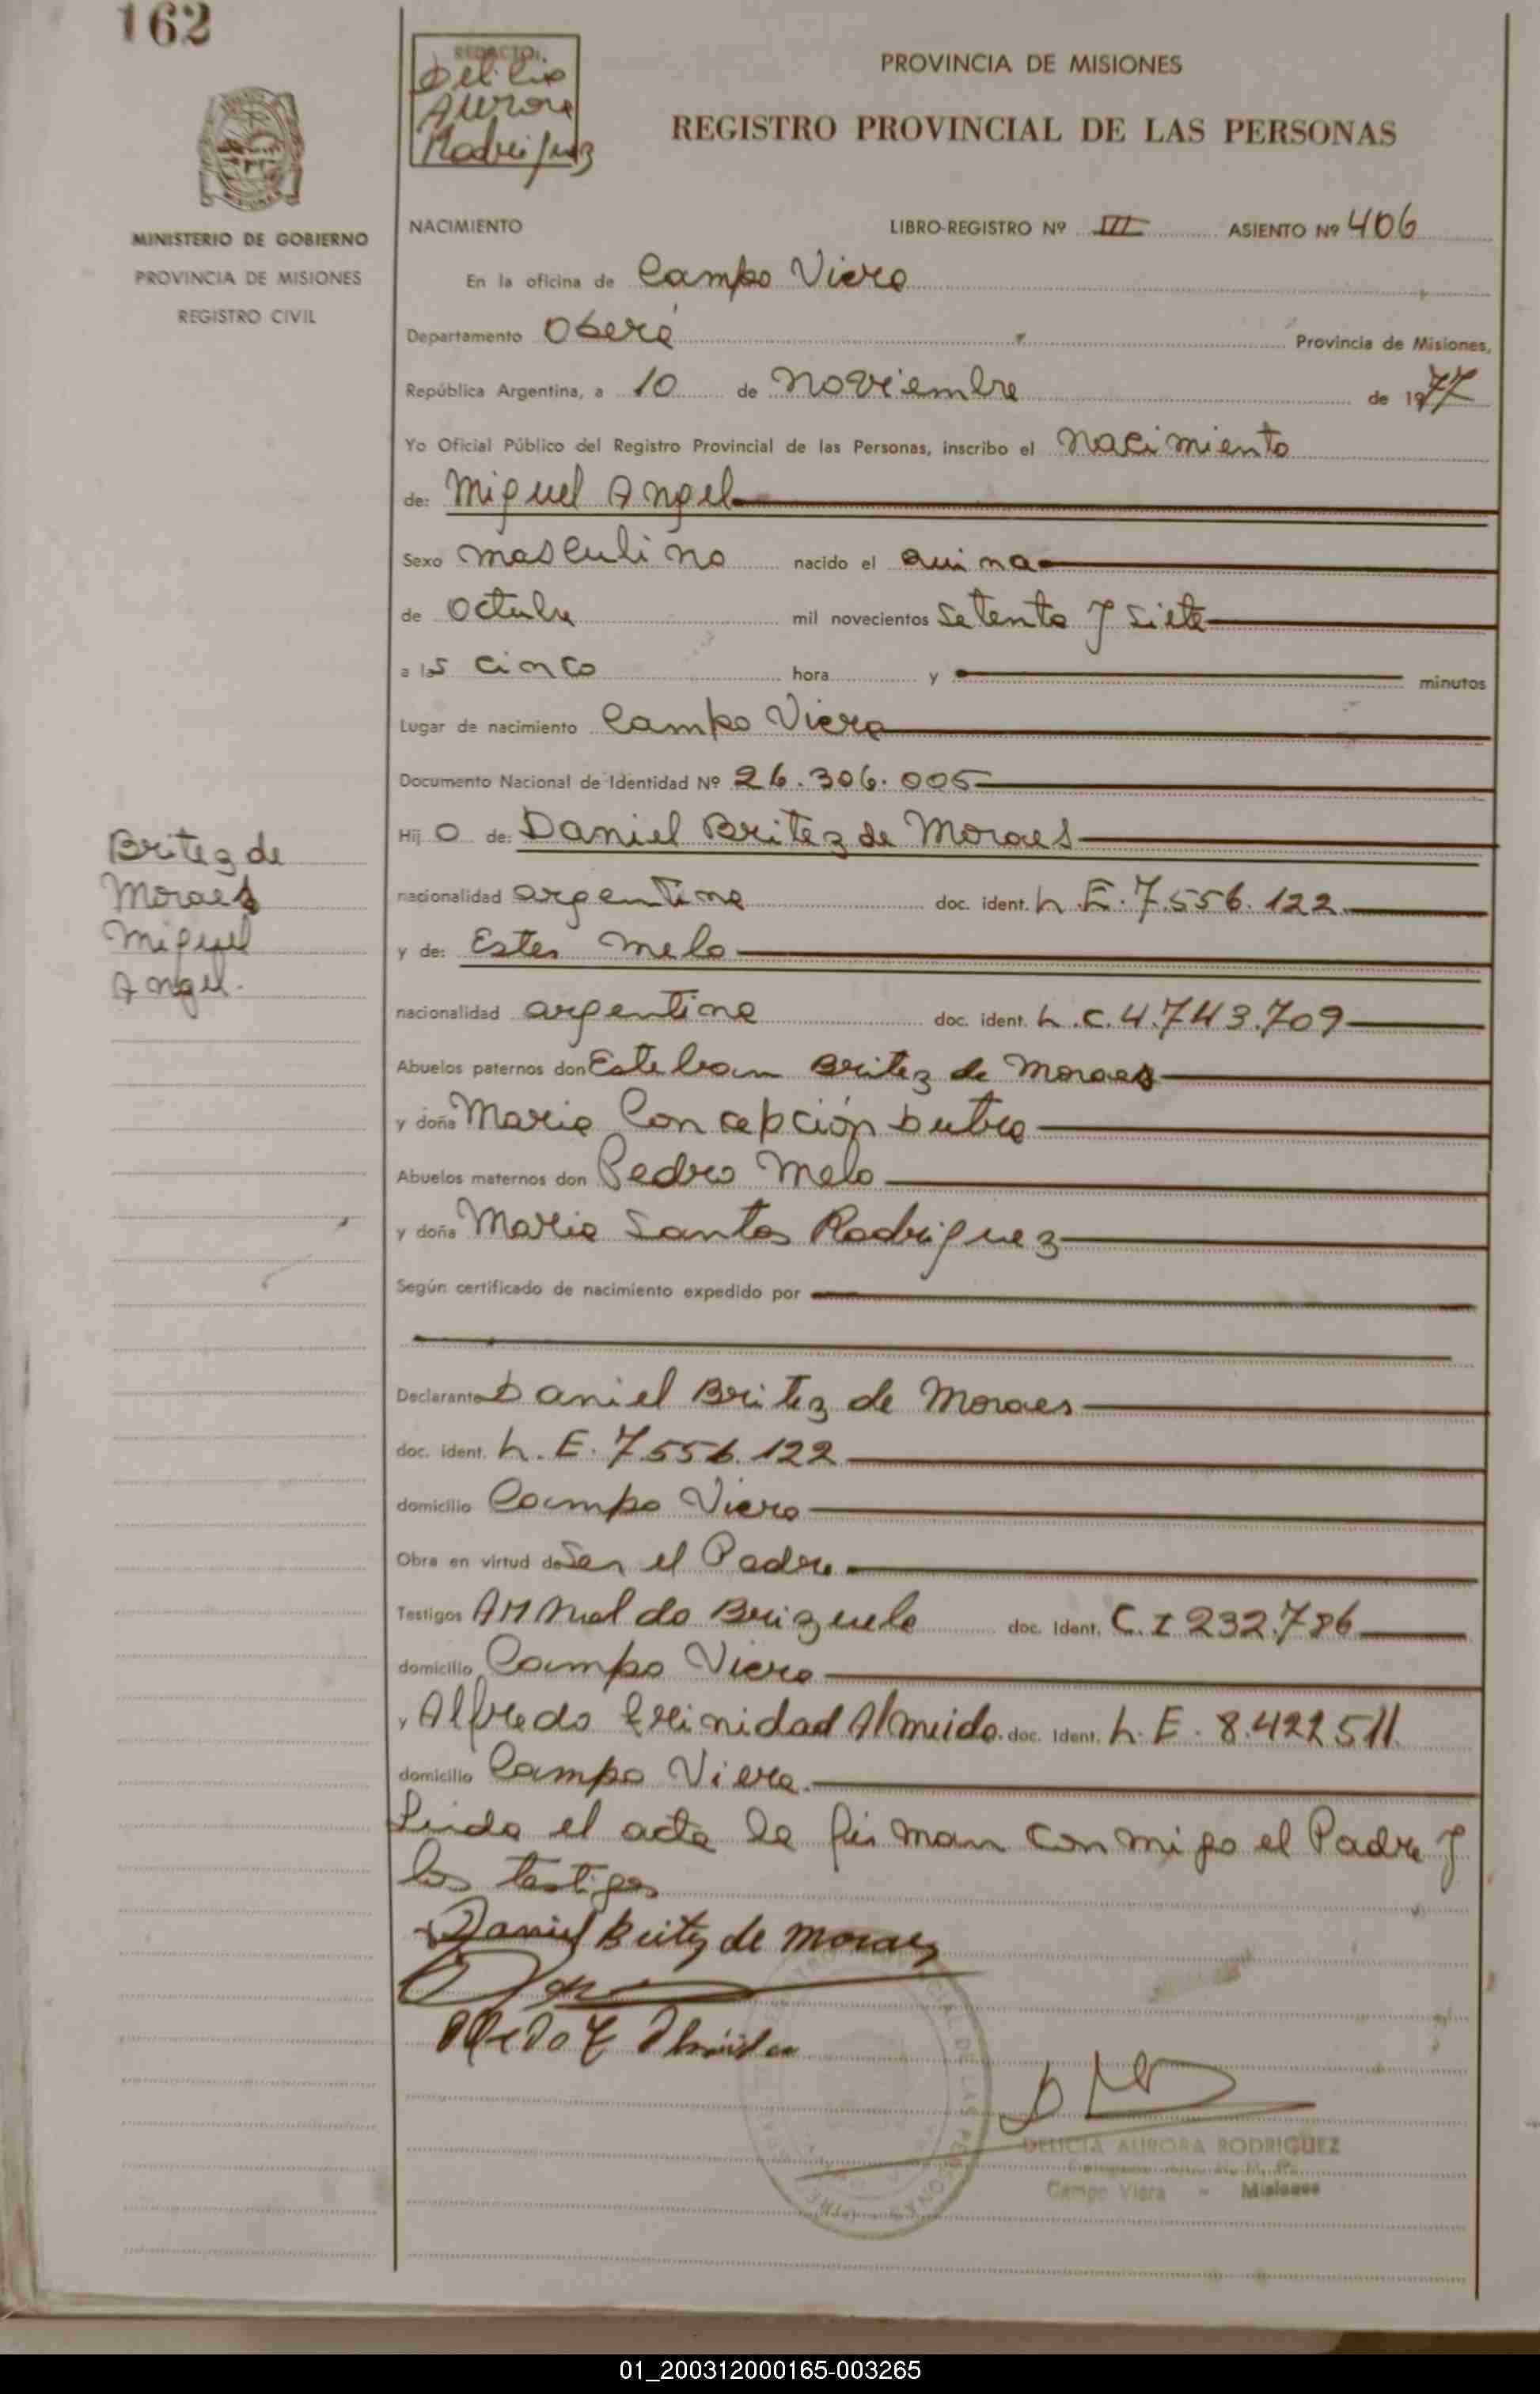 162
REDACTO:
Delicia
Aurora
Rodriguez
PROVINCIA DE MISIONES
REGISTRO PROVINCIAL DE LAS PERSONAS
MINISTERIO DE GOBIERNO
PROVINCIA DE MISIONES
REGISTRO CIVIL
NACIMIENTO LIBRO-REGISTRO Nº III ASIENTO Nº 406
En la oficina de Campo Viera
Departamento Oberá Provincia de Misiones,
República Argentina, a 10 de Noviembre de 1977
Yo Oficial Público del Registro Provincial de las Personas, inscribo el Nacimiento
de: Miguel Angel
Sexo masculino nacido el
de Octubre mil novecientos setenta y siete
a las cinco hora y minutos
Lugar de nacimiento Campo Viera
Documento Nacional de Identidad Nº 26.306.005
Hijo de: Daniel Britez de Moraes
nacionalidad argentina doc. ident. L.E. 7.556.122
y de: Ester Melo
nacionalidad argentina doc. ident. L.C. 4.743.709
Abuelos paternos don Esteban Britez de Moraes
y doña Maria Concepción Dutra
Abuelos maternos don Pedro Melo
y doña Maria Santos Rodriguez
Según certificado de nacimiento expedido por
Declarante Daniel Britez de Moraes
doc. ident. L.E. 7.556.122
domicilio Campo Viera
Obra en virtud de Ser el Padre
Testigos Brizuela doc. Ident. C.I 232.786
domicilio Campo Viera
y Alfredo Trinidad Almeida doc. Ident. L.E. 8.422.511
domicilio Campo Viera
Leida el acta la firman conmigo el Padre y
los testigos
Britez de
Moraes
Miguel
Angel.
Daniel Britez de Moraes
DELICIA AURORA RODRIGUEZ
Campo Viera - Misiones
01_200312000165-003265